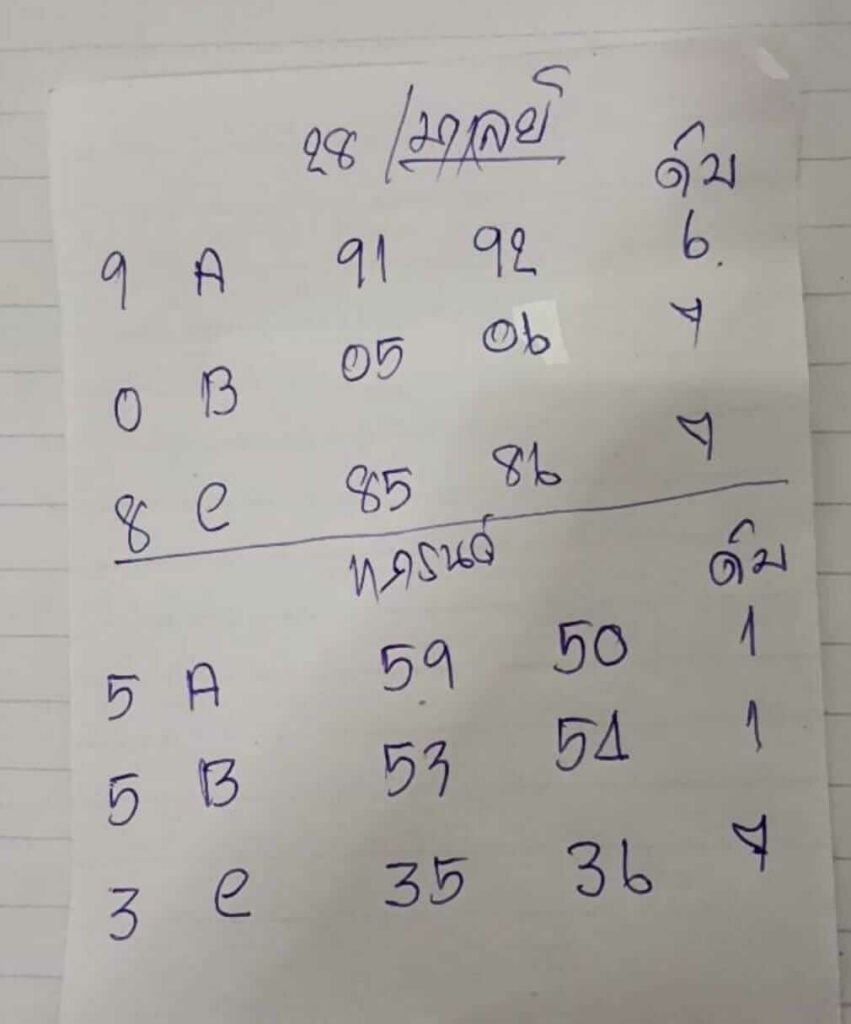 28/มาเลย์ ดับ
9 A 91 92 6
0 B 05 06 7
8 C 85 86 7
ดับ
5 A 59 50 1
5 B 53 54 1
3 C 35 36 7